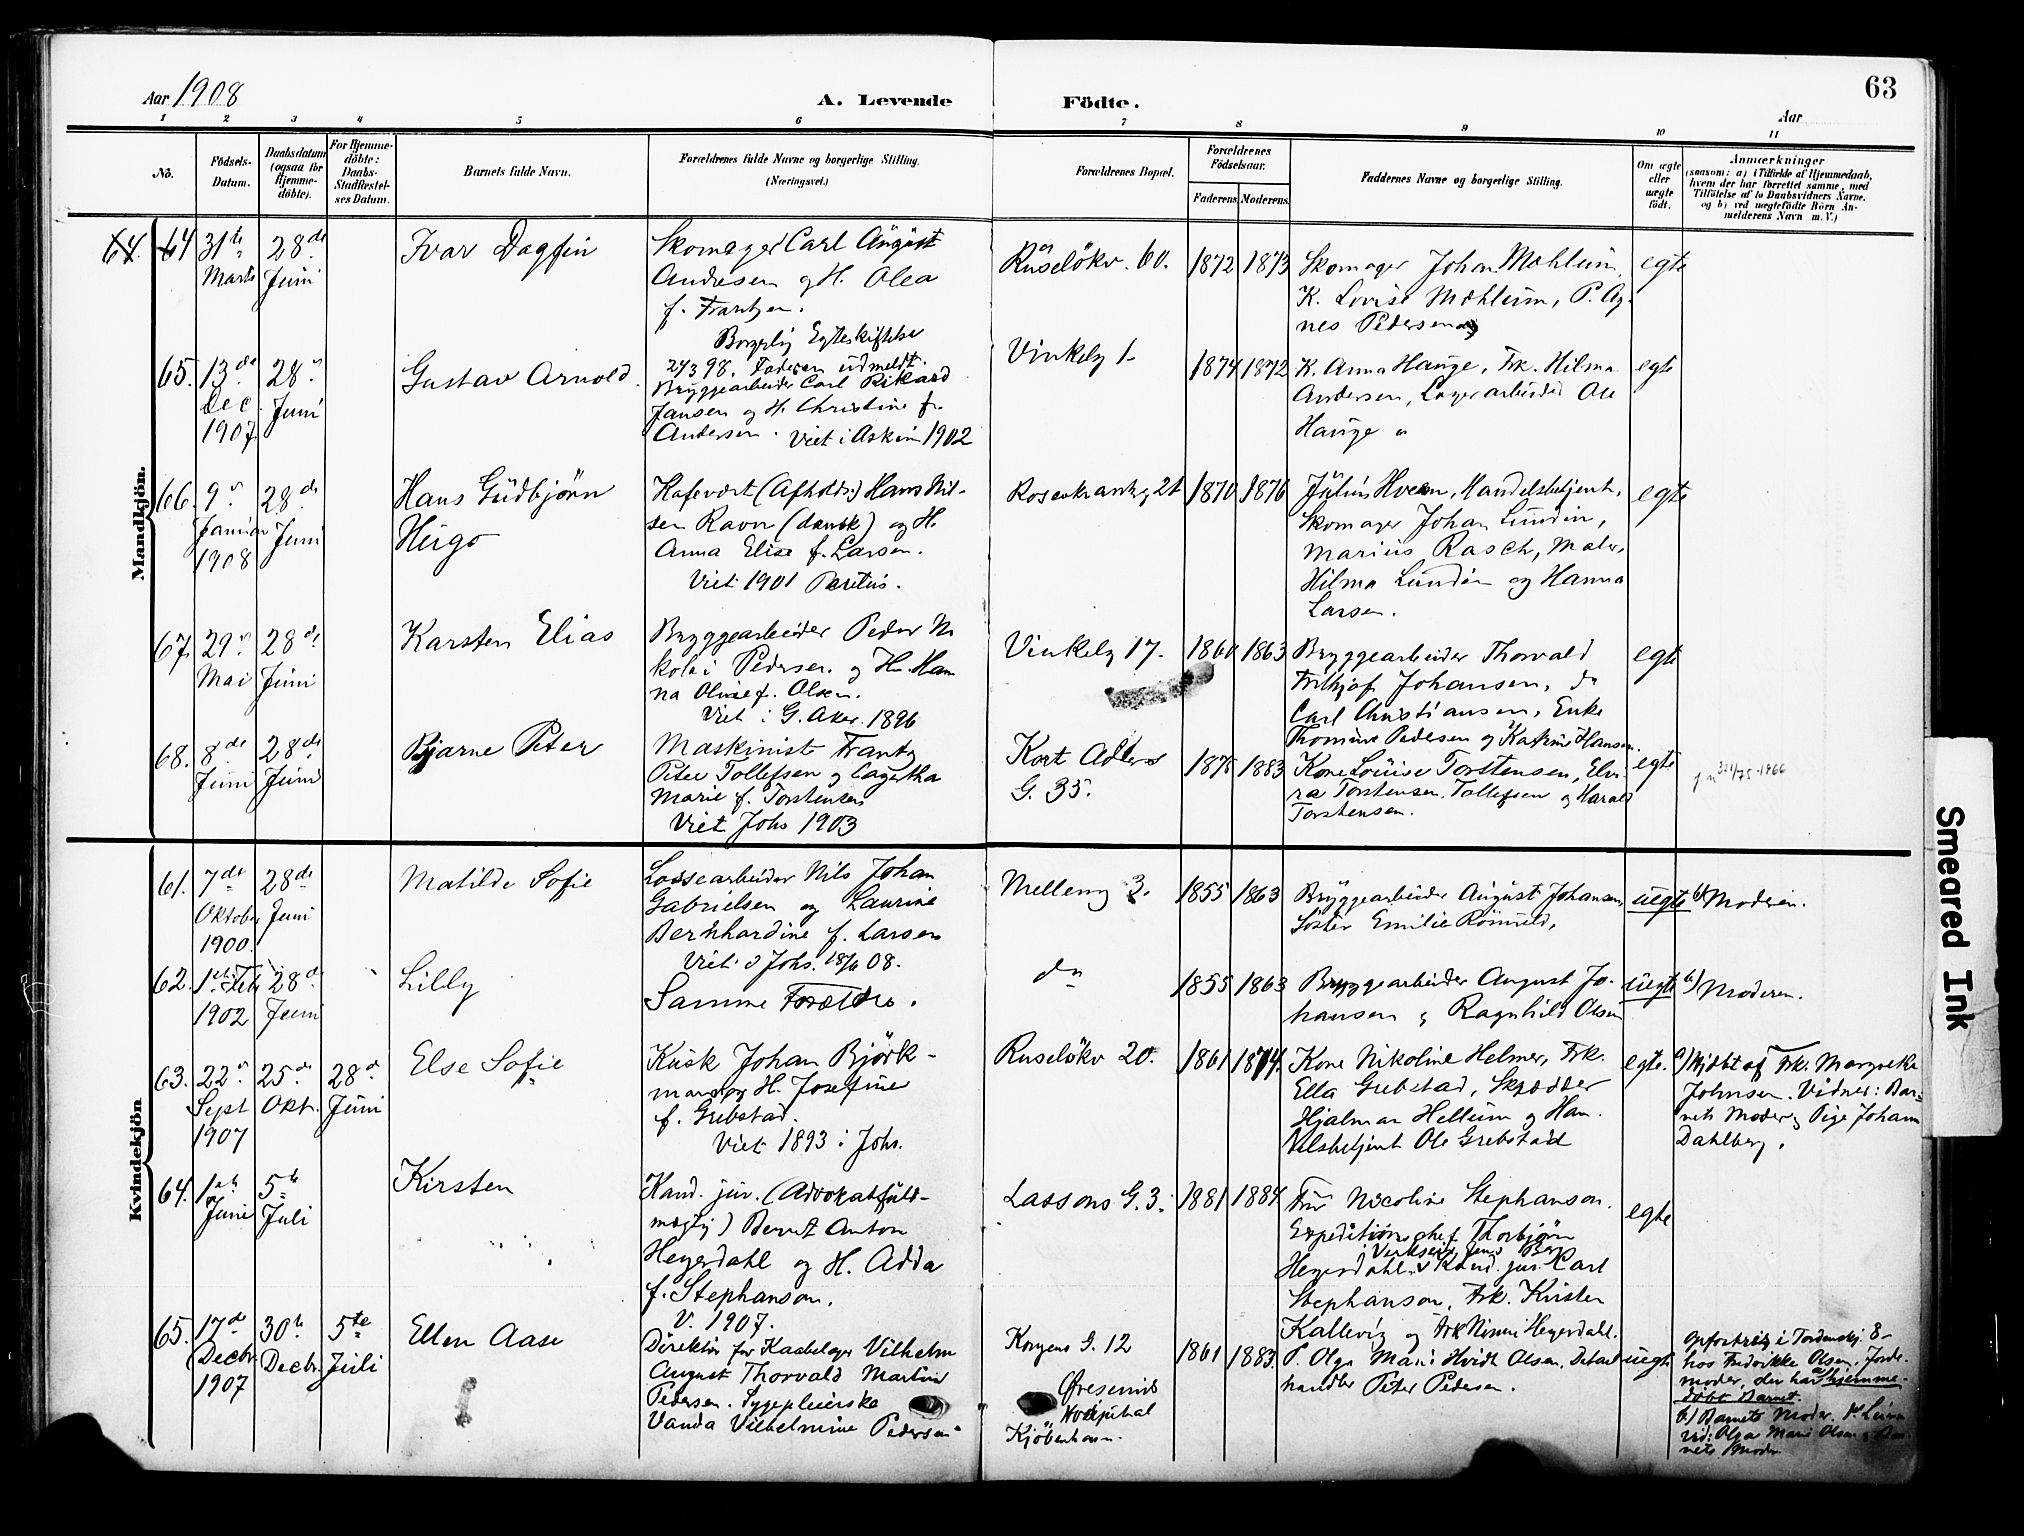 63
Aar 1908
A. Levende Födte.
Aar
1 2 3 4 5 6 7 8 9 10 11
No.
Födsels-Datum.
Daabsdatum (ogsaa for Hjemme-döbte).
For Hjemme-döbte: Daabs-Stadfæstel-ses Datum.
Barnets fulde Navn.
Forældrenes fulde Navne og borgerlige Stilling.
(Næringsvei.)
Forældrenes Bopæl.
Forældrenes Födselsaar.
Faderens Moderens
Faddernes Navne og borgerlig Stilling.
Om ægte eller uægte födt.
Anmærkninger
(saasom: a) i Tilfælde af Hjemmedaab,
hvem der har forrettet samme, med
Tilföielse af to Daabsvidners Navne,
og b) ved uægtefödte Börn An-
melderens Navn m. V.)
Mandkjön.
64. 64 31te Marts
28de Juni
Ivar Dagfin
Skomager Carl August
Andresen og H. Olea
f. Frantzen.
Borgerlig Egteskiftelse
24/3 98. Faderen udmeldt.
Ruseløkv. 60.
1872 1873
Skomager Johan Mæhlum,
K. Lovise Mæhlum, P. Ag-
nes Pedersen
egte
65. 13de Dec. 1907
28 Juni
Gustav Arnold
Bryggearbeider Carl Rikard
Jansen og H. Christine f.
Andersen. Viet i Askim 1902
Vinkelg 1
1874 1872
K. Anna Hauge, Frk. Hilma
Andersen, Lagerarbeider Ole
Hauge
egte
66. 9 Januar 1908
28de Juni
Hans Gudbjörn
Hugo
Kafevært (Afholds.) Hans Nil-
sen Ravn (dansk) og H.
Anna Elise f. Larsen.
Viet 1901
Rosenkrantzg 21
1870 1876
Julius Hveem, Handelsbetjent,
Skomager Johan Lundin,
Marius Rasch, Maler,
Hilma Lundin og Hanna
Larsen.
egte
67. 29 Mai
28de Juni
Karsten Elias
Bryggearbeider Peder Ni
kolai Pedersen og H. Han
na Olise f. Olsen.
Viet i G. Aker 1896
Vinkelg 17.
1860 1863
Bryggearbeider Thorvald
Frithjof Johansen, do
Carl Christiansen, Enke
Thomine Pedersen og Katrine Hansen.
egte
68. 8de Juni
28de Juni
Bjarne Peter
Maskinist Frantz
Peter Tollefsen og Lagertha
Marie f. Torstensen
Viet Johs 1903
Kort Adlers
G. 35.
1875 1883
Kone Louise Torstensen, Elvi-
ra Torstensen Tollefsen og Harald
Torstensen.
egte
Kvindekjön
61. 7de Oktober 1900.
28de Juni
Matilde Sofie
Lossearbeider Nils Johan
Gabrielsen og Laurine
Bernhardine f. Larsen
Viet i Johs. 28/6 08.
Mellemg 3.
1855 1863
Bryggearbeider August Johansen,
Søster Emilie
uegte
b) Moderen.
62. 1ste Feb. 1902
28de Juni
Lilly
Samme Forældre.
do
1855 1863
Bryggearbeider August Jo-
hansen og Ragnhild Olsen
uegte
b) Moderen.
63. 22 Sept 1907
25de Okt.
28de Juni
Else Sofie
Kusk Johan Björk-
man og H. Josefine
f. Grebstad.
Viet 1893 i Johs.
Ruseløkv 20.
1861 1874.
Kone Nikoline Helmer, Frk.
Ella Grebstad, Skrædder
Hjalmar Hellum og Han-
delsbetjent Ole Grebstad
egte.
a) Hjdbt af Frk. Margrethe
Johnsen. Vidner: Bar-
nets Moder og Pige Johanne
Dahlberg.
64. 1ste Juni
5te Juli
Kirsten
Kand. jur. (Advokatfuld-
mægtig) Bernt Anton
Heyerdahl og H. Adda
f. Stephanson.
V. 1907.
Lassons G. 3.
1881 1884
Fru Nicoline Stephanson.
Expeditionschef Thorbjörn
Heyerdahl, Kand. jur. Carl
Stephanson, Frk. Kirsten
Kallevig og Frk. Heyerdahl.
egte
65. 17de Decbr 1907
30te Decbr
5te Juli
Ellen Aase
Direktör for Kabelager Vilhelm
August Thorvald Martin
Pedersen. Sygepleierske
Vanda Vilhelmine Pedersen
Kongens G. 12
Öresunds
Hospital
Kjöbenhavn.
1861 1883.
P. Olga Marie Hvidt Olsen, Detail
handler Peter Pedersen.
uegte
Opfostres i Tordenskj. 8
hos Fredrikke Olsen, Jorde-
moder, der har hjemme-
döbt Barnet.
b) Barnets Moder.
Vid: Olga Marie Olsen og Bar-
nets Moder
Smeared Ink